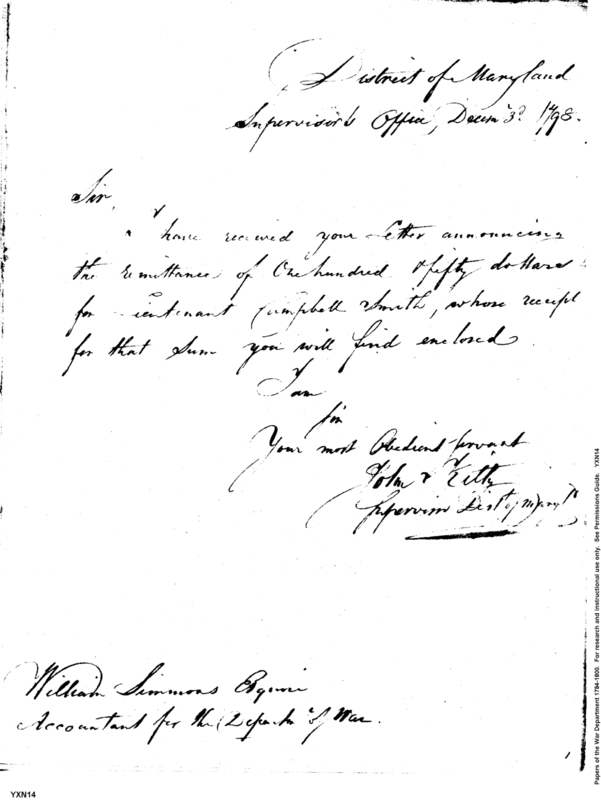 District of Maryland
Supervisor's Office, Decem 3d. 1798.
Sir,
I have received your Letter announcing
the remittance of One hundred & fifty dollars
for Lieutenant Campbell Smith, whose receipt
for that Sum you will find enclosed
I am
Sir
Your most Obedient Servant
John Kilty
Supervisor Dist. of Maryld
William Simmons Esquire
Accountant for the Departm of War.
YXN14
Papers of the War Department 1784-1800. For research and instructional use only. See Permissions Guide. YXN14